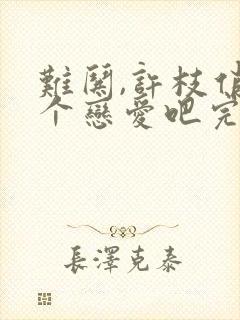 難鬨,許枝俏
个戀愛吧完
長澤克泰